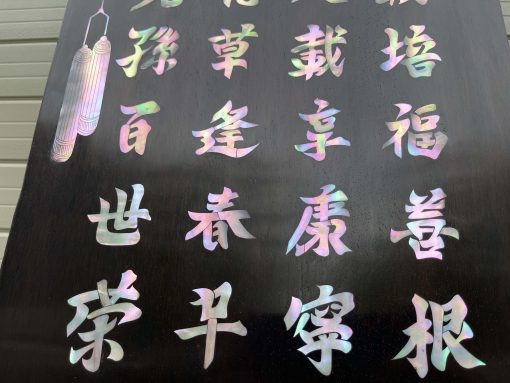 培福善根
載享康寧
草逢春早
孫百世栄